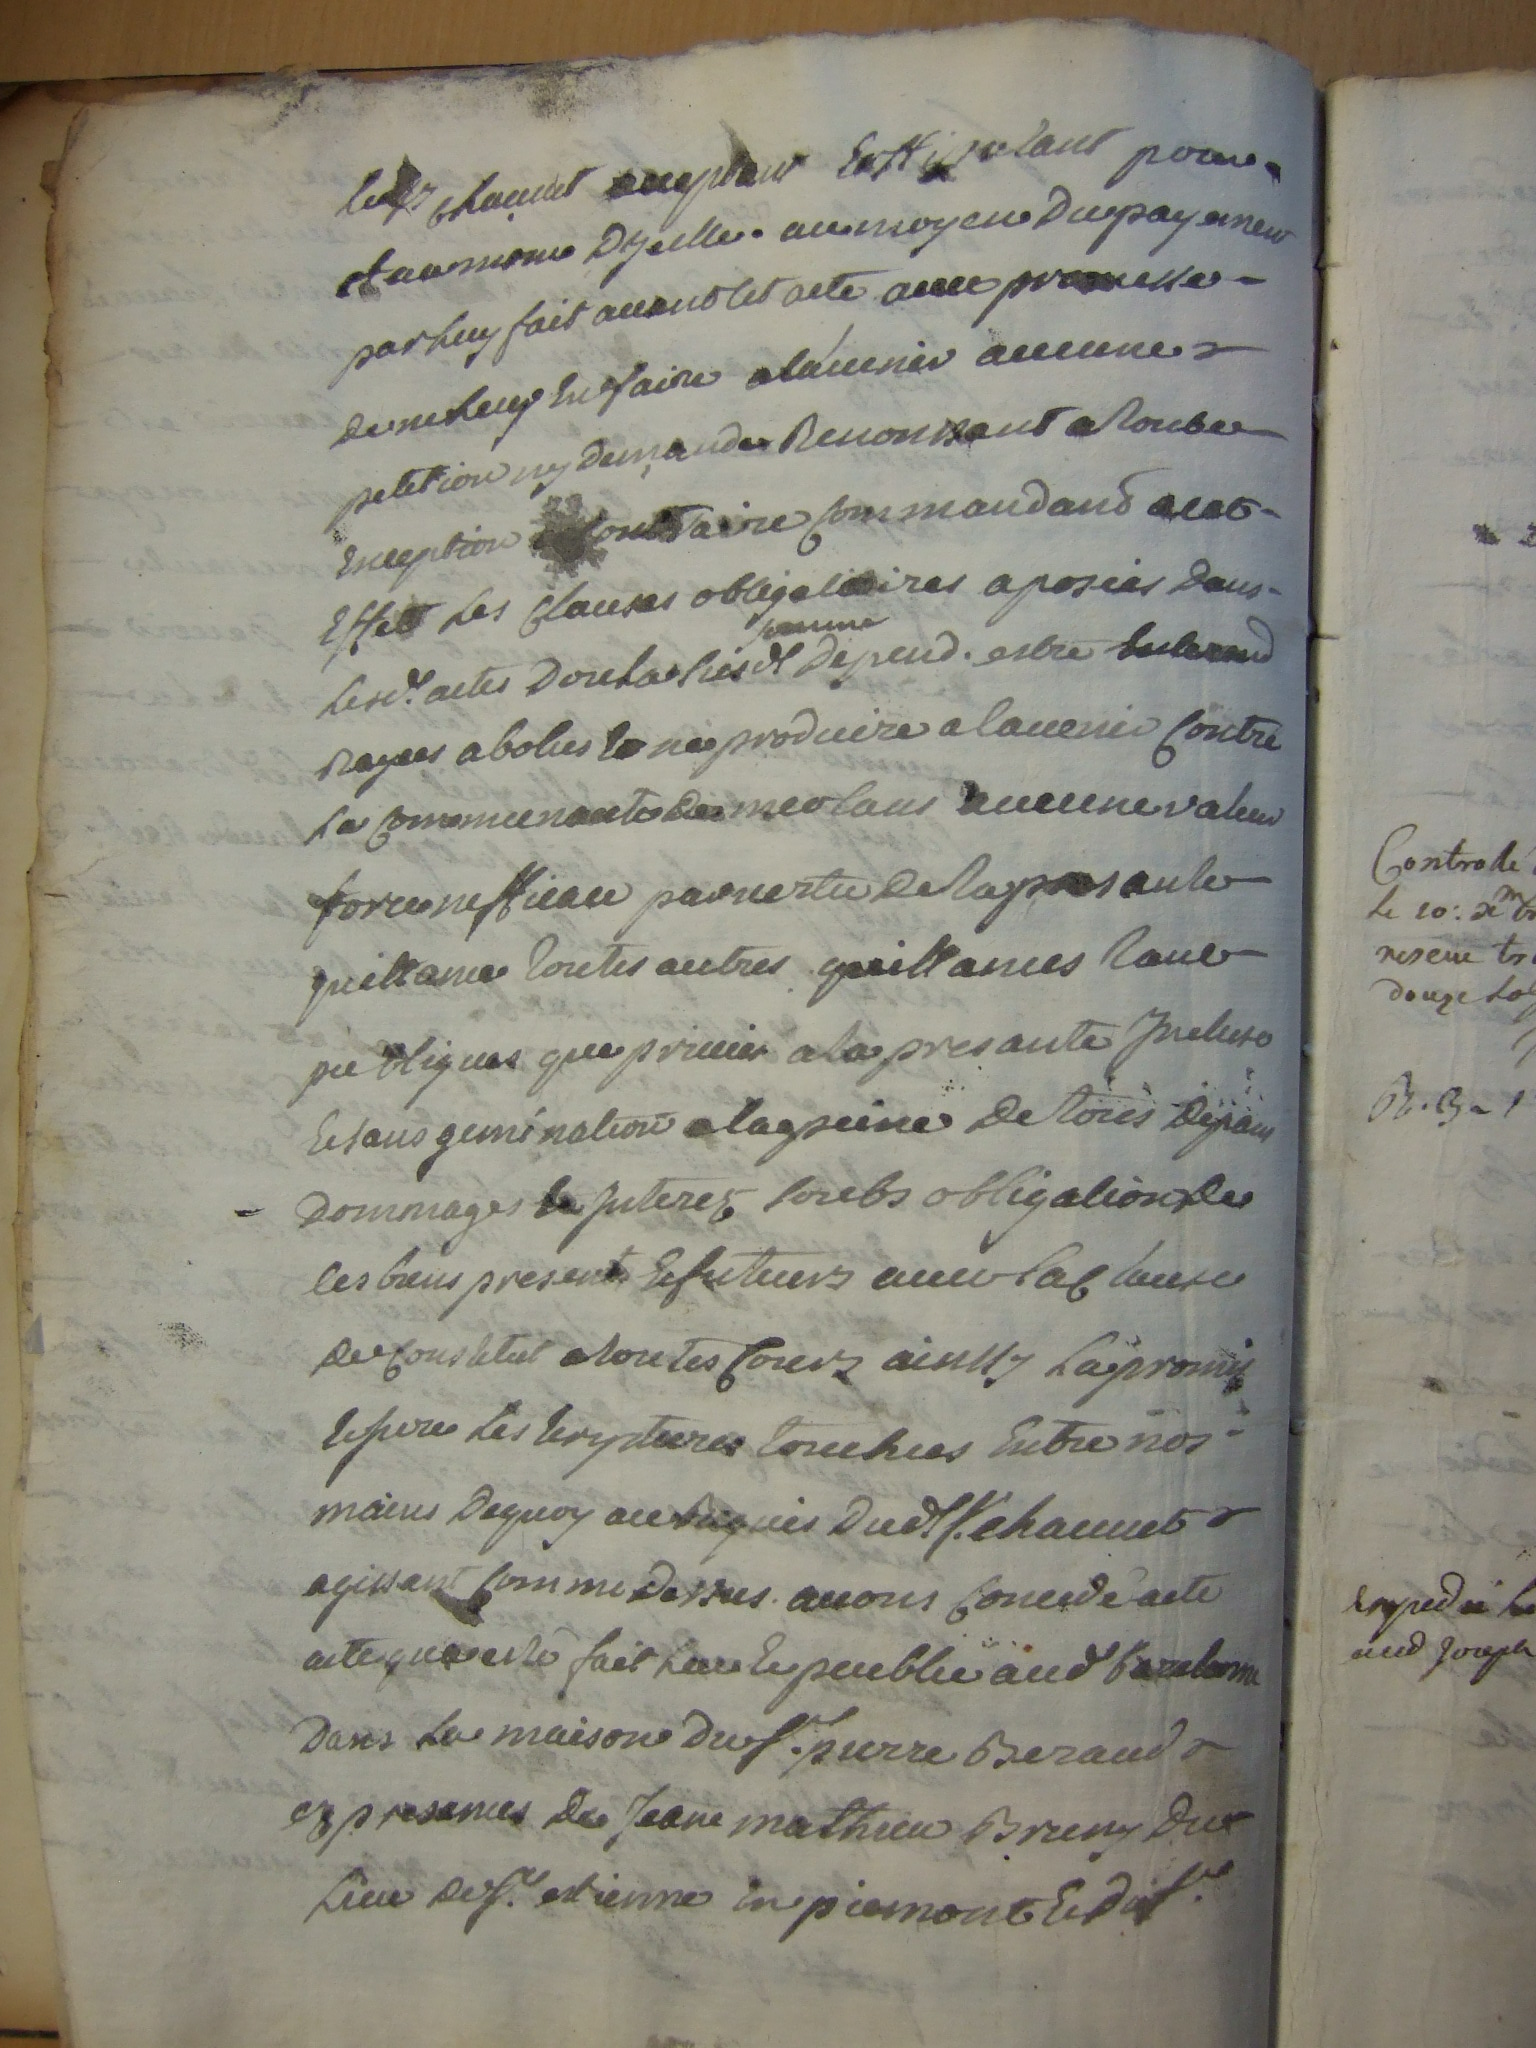 chaunet acceptant et stipulant pour
et au nom d'ycelle au moyen du payemen
par luy fait auant cet acte auec promesse
de ne luy en faire a l'auenir aucune
petition ny demande Renonssant a toute
Exception contraire Commandant acet
Effet les Clauses obligatoires aposées dans
lesd. actes dont la susd. somme depend. estre
Rayées abolies Et ne produire a lauenir Contre
La Communauté de meolans aucune valeur
force n'efficace par vertu de la presante
quittance toutes autres quittances tant
publiques que priuées a la presante Incluse
Et sans gemination a la peine de tous depans
Dommages Et Interez soubs obligation de
ses biens presents Et futeurs auec la Clause
de Constitut a toutes Cours ainssy La promis
Et juré Les Escryptures touchées Entre nos
mains dequoy au Requis dudt. Sr. chaunet
agissant Comme dessus. auons Concedé acte
acte que esté fait leu Et publié aud.
Dans La maison du Sr. pierre Beraud
ez presences de Jean mathieu Bruny du
Lieu de St. estienne en piemont Et du Sr.
Controllé
Le 10:
douze
R. B.
Expedié
aud Joseph